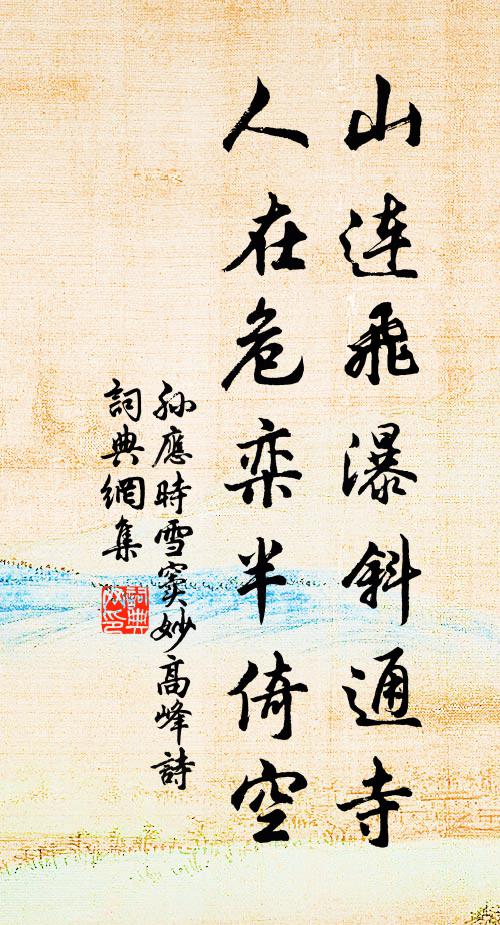 山連飛瀑斜通寺
人在危栾半倚空
孫應時雪窦妙高峰詩
詞典網集